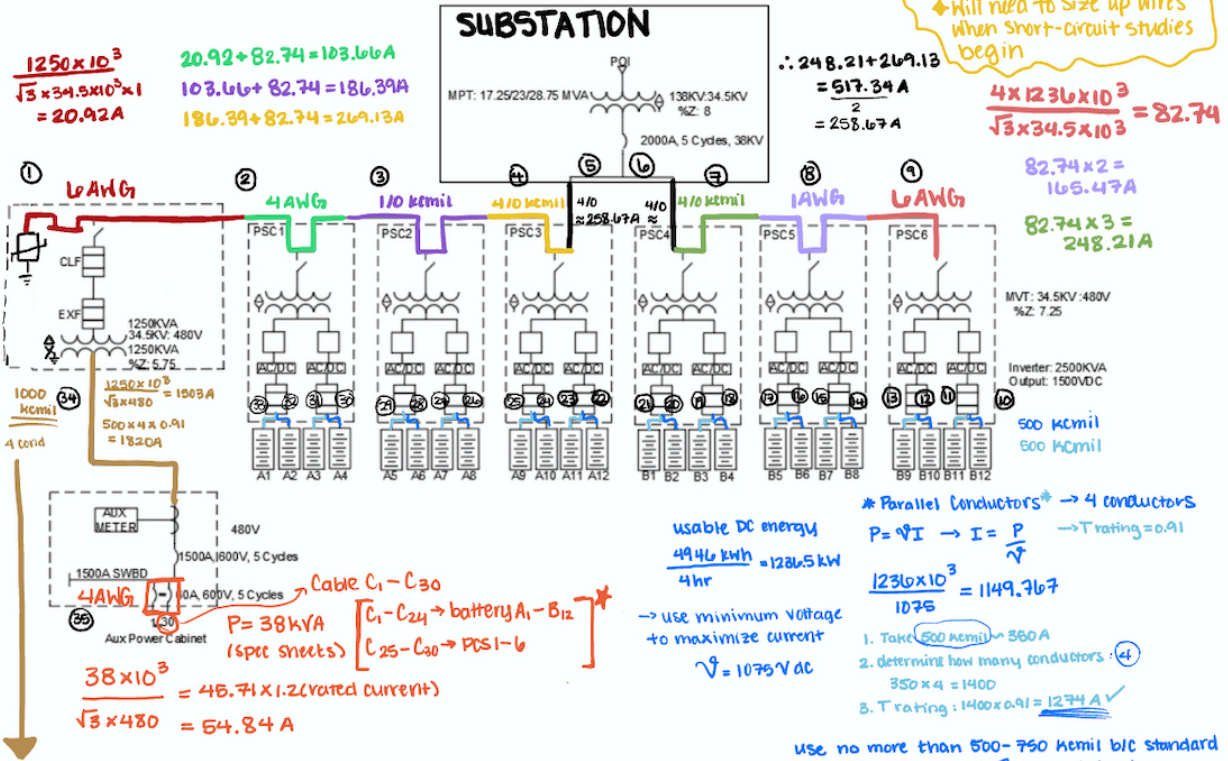 SUBSTATION
◆ Will need to size up wires
when short-circuit studies
begin
1250 x 10³
√3 x 34.5x10³ x 1
= 20.92A
20.92 + 82.74 = 103.66A
103.66 + 82.74 = 186.39A
186.39 + 82.74 = 269.13A
POI
MPT: 17.25/23/28.75 MVA
138KV:34.5KV
%Z: 8
2000A, 5 Cycles, 38KV
∴ 248.21 + 269.13
= 517.34 A
2
= 258.67A
4 x 1236 x 10³
√3 x 34.5 x 10³
= 82.74
82.74 x 2 =
165.47A
82.74 x 3 =
248.21A
1
6AWG
2
4AWG
3
1/0 kcmil
4
4/0 kcmil
5
4/0
≈258.67A
6
4/0
≈
7
4/0 kcmil
8
1AWG
9
6AWG
PSC1
PSC2
PSC3
PSC4
PSC5
PSC6
CLF
EXF
1250KVA
34.5KV: 480V
1250KVA
%Z: 5.75
MVT: 34.5KV:480V
%Z: 7.25
Inverter: 2500KVA
Output: 1500VDC
AC/DC AC/DC AC/DC AC/DC AC/DC AC/DC AC/DC AC/DC AC/DC AC/DC AC/DC AC/DC
33 32 31 30 29 28 27 26 25 24 23 22 21 20 19 18 17 16 15 14 13 12 11 10
500 kcmil
500 kcmil
A1 A2 A3 A4 A5 A6 A7 A8 A9 A10 A11 A12 B1 B2 B3 B4 B5 B6 B7 B8 B9 B10 B11 B12
1000
kcmil
4 cond
34
1250 x 10³
√3 x 480
= 1503A
500 x 4 x 0.91
= 1820A
AUX
METER
480V
1500A, 600V, 5 Cycles
1500A SWBD
4AWG
60A, 600V, 5 Cycles
35
1:30
Aux Power Cabinet
Cable C1 - C30
P = 38kVA
(spec sheets)
C1 - C24 → battery A1 - B12
C25 - C30 → PCS1-6
*
38 x 10³
√3 x 480
= 45.71 x 1.2 (rated current)
= 54.84 A
usable DC energy
4946 kWh
4hr
= 1236.5 kW
→ use minimum voltage
to maximize current
V = 1075 V dc
* Parallel Conductors * → 4 conductors
P = VI → I = P
V
→ T rating = 0.91
1236 x 10³
1075
= 1149.767
1. Take 500 kcmil ~ 350 A
2. determine how many conductors: 4
350 x 4 = 1400
3. T rating: 1400 x 0.91 = 1274 A ✓
use no more than 500-750 kcmil b/c standard